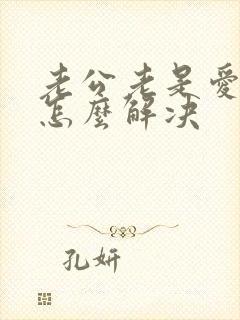 老公老是愛
怎麼解決
孔妍